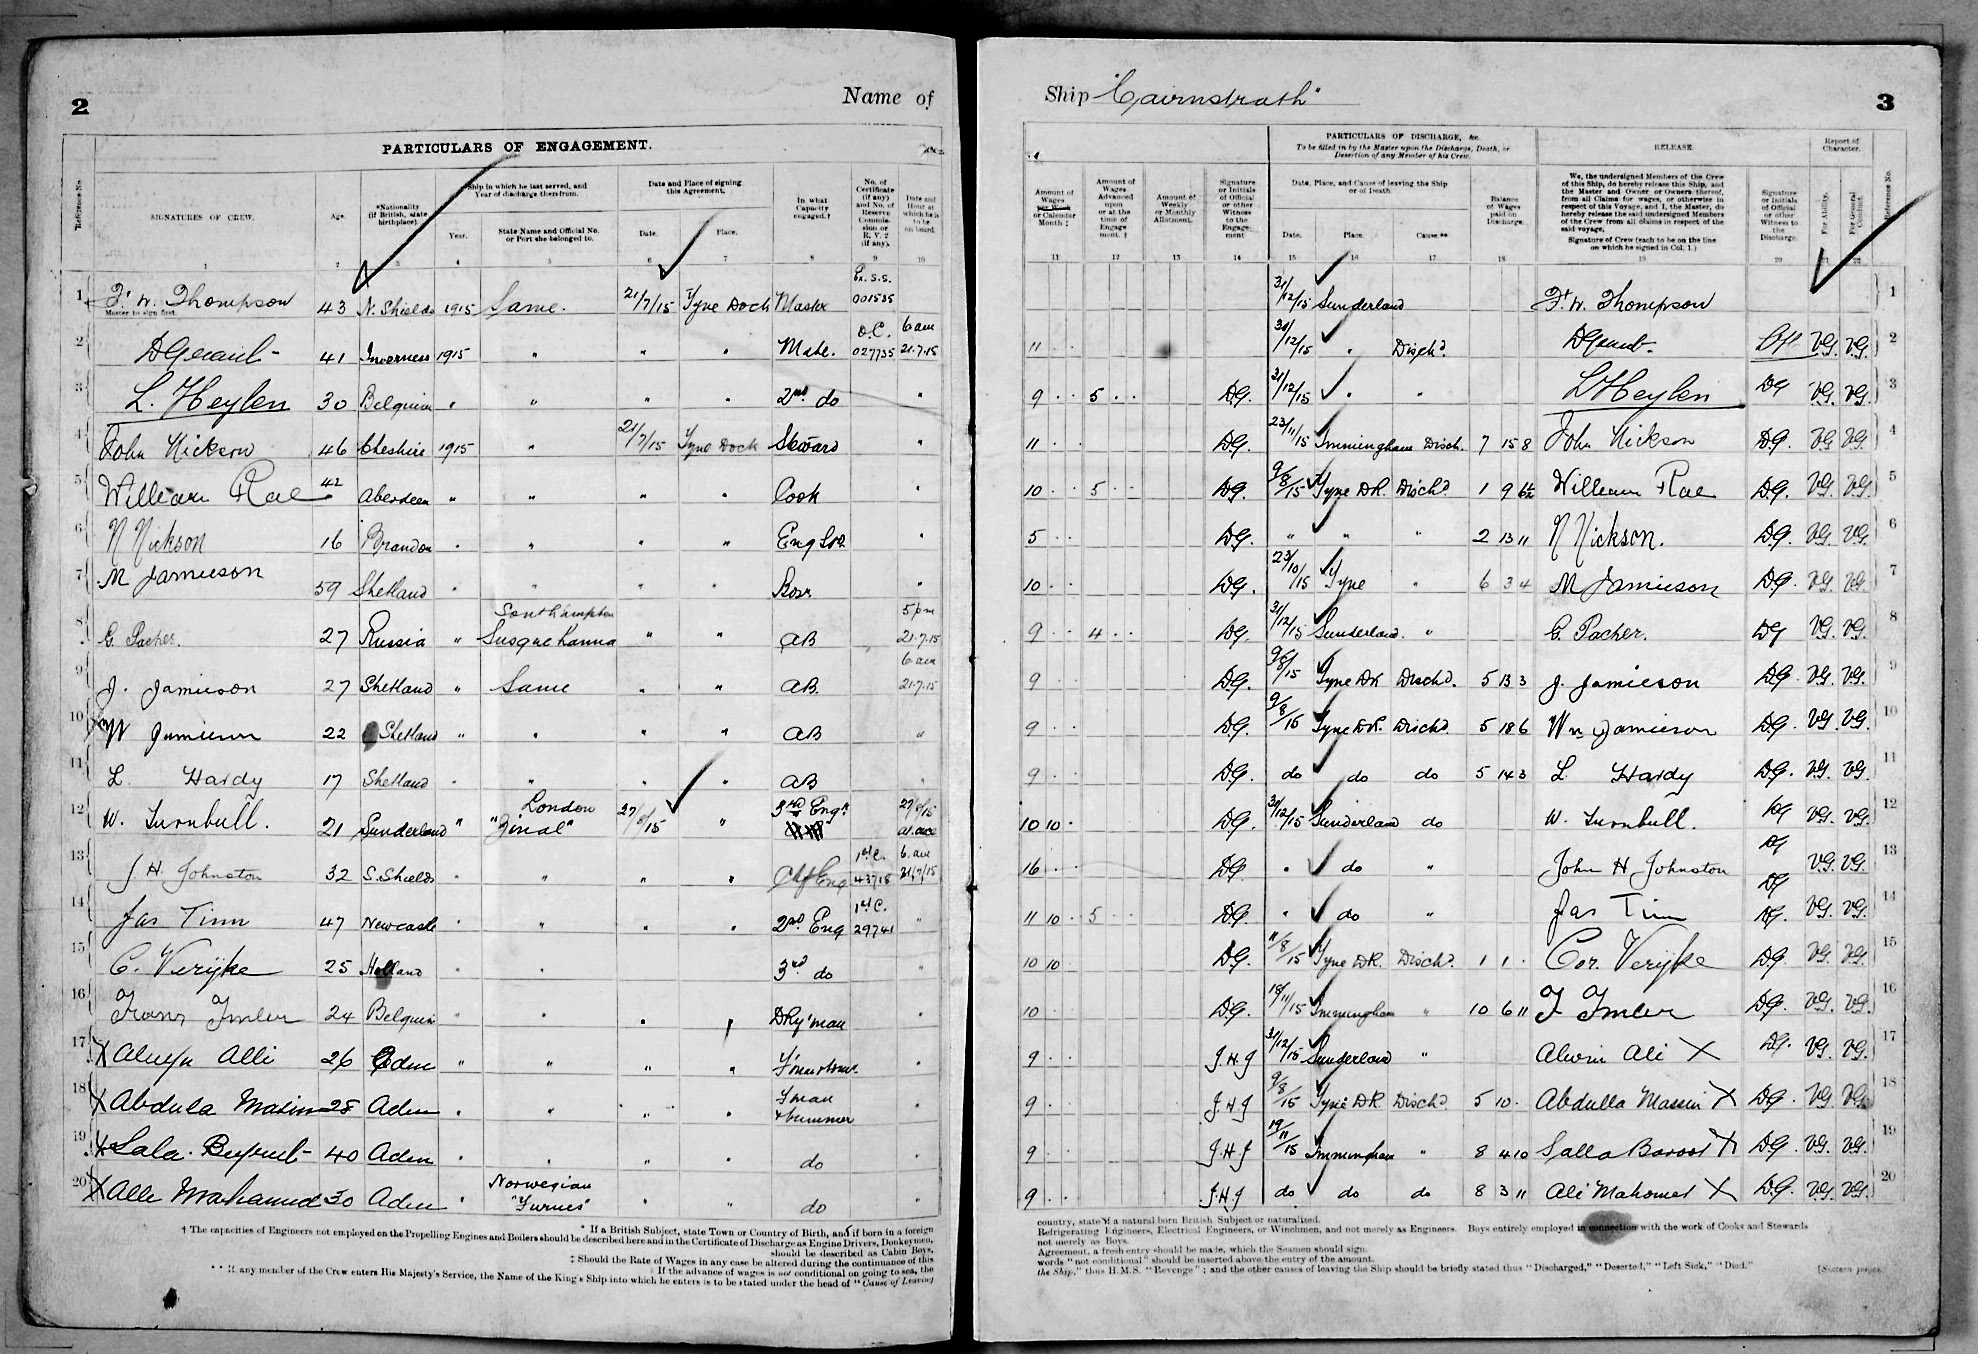 2
Name of
PARTICULARS OF ENGAGEMENT.
Reference No.
SIGNATURES OF CREW.
Age.
*Nationality (if British, state birthplace).
Ship in which he last served, and Year of discharge therefrom.
Year.
State Name and Official No. or Port she belonged to.
Date and Place of signing this Agreement.
Date.
Place.
In what Capacity engaged.†
No. of Certificate (if any) and No. of Reserve Commission or R.V.2 (if any).
Date and Hour at which he is to be on board.
1 2 3 4 5 6 7 8 9 10
1 F. W. Thompson 43 N. Shields 1915 Same. 21/7/15 Tyne Dock Master Ex. S.S. 001535
Master to sign first.
2 41 Inverness 1915 " " " Mate. O.C. 027735 6 am 21.7.15
3 L. Heylen 30 Belgium " " " " 2nd do "
4 John Nickson 46 Cheshire 1915 " 21/7/15 Tyne Dock Steward "
5 William Rae 42 Aberdeen " " " " Cook "
6 N Nickson 16 Brandon " " " "
7 M Jamieson 59 Shetland " " " " Bosn "
8 G. Pacher. 27 Russia " Southampton Susquehanna " " AB 5 pm 21.7.15
9 J. Jamieson 27 Shetland " Same " " AB. 6 am 21.7.15
10 W Jamieson 22 Shetland " " " " AB "
11 L Hardy 17 Shetland " " " " AB "
12 W. Turnbull. 21 Sunderland " London 27/7/15 " 3rd Engr 27/7/15 at once
13 J H. Johnston 32 S. Shields " " " " Chf Eng 1st C. 43718 6 am 21/7/15
14 Jas Tinn 47 Newcastle " " " " 2nd Eng 1st C. 29741 "
15 C. Verijke 25 Holland " " " " 3rd do "
16 Frans 24 Belgium " " " " Dkyman "
17 X Alli 26 Aden " " " " "
18 X Abdula 28 Aden " " " " Fman & trimmer "
19 X Lala 40 Aden " " " " do "
20 X Alle Mahamed 30 Aden " Norwegian " " do
† The capacities of Engineers not employed on the Propelling Engines and Boilers should be described here and in the Certificate of Discharge as Engine Drivers, Donkeymen,
* If a British Subject, state Town or Country of Birth, and if born in a foreign
should be described as Cabin Boys,
‡ Should the Rate of Wages in any case be altered during the continuance of this
If the advance of wages is not conditional on going to sea, the
** If any member of the Crew enters His Majesty's Service, the Name of the King's Ship into which he enters is to be stated under the head of "Cause of Leaving
Ship "Cairnstrath"
3
PARTICULARS OF DISCHARGE, &c.
To be filled in by the Master upon the Discharge, Death, or Desertion of any Member of his Crew.
RELEASE
Report of Character.
Amount of Wages per Week or Calendar Month ‡
Amount of Wages Advanced upon or at the time of Engagement. ‡
Amount of Weekly or Monthly Allotment.
Signature or Initials of Official or other Witness to the Engagement
Date, Place, and Cause of leaving the Ship or of Death.
Date.
Place.
Cause **
Balance of Wages paid on Discharge.
We, the undersigned Members of the Crew of this Ship, do hereby release this Ship, and the Master and Owner or Owners thereof, from all Claims for wages, or otherwise in respect of this Voyage, and I, the Master, do hereby release the said undersigned Members of the Crew from all claims in respect of the said voyage.
Signature of Crew (each to be on the line on which he signed in Col. 1.)
Signature or Initials of Official or other Witness to the Discharge.
For Ability.
For General Conduct.
Reference No.
11 12 13 14 15 16 17 18 19 20 21 22
31/12/15 Sunderland F. W. Thompson 1
11 31/12/15 " Disch'd. V.G. V.G. 2
9 5 D.G. 31/12/15 " " L Heylen DG V.G. V.G. 3
11 D.G. 23/11/15 Immingham Disch. 7 15 8 John Nickson D.G. V.G V.G. 4
10 5 D.G. 9/8/15 Tyne Dk. Disch'd 1 9 William Rae D.G. V.G. V.G. 5
5 D.G. " " " 2 13 11 N Nickson. D.G. V.G. V.G. 6
10 D.G. 23/10/15 Tyne " 6 3 4 M Jamieson D.G. V.G. V.G. 7
9 4 D.G. 31/12/15 Sunderland. " G. Pacher. DG V.G. V.G. 8
9 D.G. 9/8/15 Tyne Dk Disch'd. 5 13 3 J. Jamieson D.G. V.G. V.G. 9
9 D.G. 9/8/15 Tyne Dk. Disch'd. 5 18 6 Wm Jamieson D.G. V.G. V.G. 10
9 D.G. do do do 5 14 3 L Hardy D.G. V.G. V.G. 11
10 10 D.G. 31/12/15 Sunderland do W. Turnbull. DG V.G. V.G. 12
16 D.G. " do " John H Johnston DG V.G. V.G. 13
11 10 5 D.G. " do " Jas Tinn D.G. V.G. V.G. 14
10 10 D.G. 11/8/15 Tyne Dk. Disch'd. 1 1 Cor. Verijke D.G. V.G. V.G. 15
10 D.G. 18/11/15 Immingham " 10 6 11 F D.G. V.G. V.G. 16
9 J.H.J 31/12/15 Sunderland " Alwin Ali X D.G. V.G. V.G. 17
9 J.H.J 9/8/15 Tyne Dk Disch'd 5 10 Abdulla Massin X D.G. V.G. V.G. 18
9 J.H.J 19/11/15 Immingham " 8 4 10 Salla X D.G. V.G. V.G. 19
9 J.H.J do do do 8 3 11 Ali Mahomet X D.G. V.G. V.G. 20
country, state if a natural born British Subject or naturalized.
Refrigerating Engineers, Electrical Engineers, or Winchmen, and not merely as Engineers. Boys entirely employed in connection with the work of Cooks and Stewards
not merely as Boys.
Agreement, a fresh entry should be made, which the Seamen should sign.
words "not conditional" should be inserted above the entry of the amount.
the Ship," thus H.M.S. "Revenge"; and the other causes of leaving the Ship should be briefly stated thus "Discharged," "Deserted," "Left Sick," "Died."
[Sixteen pages.